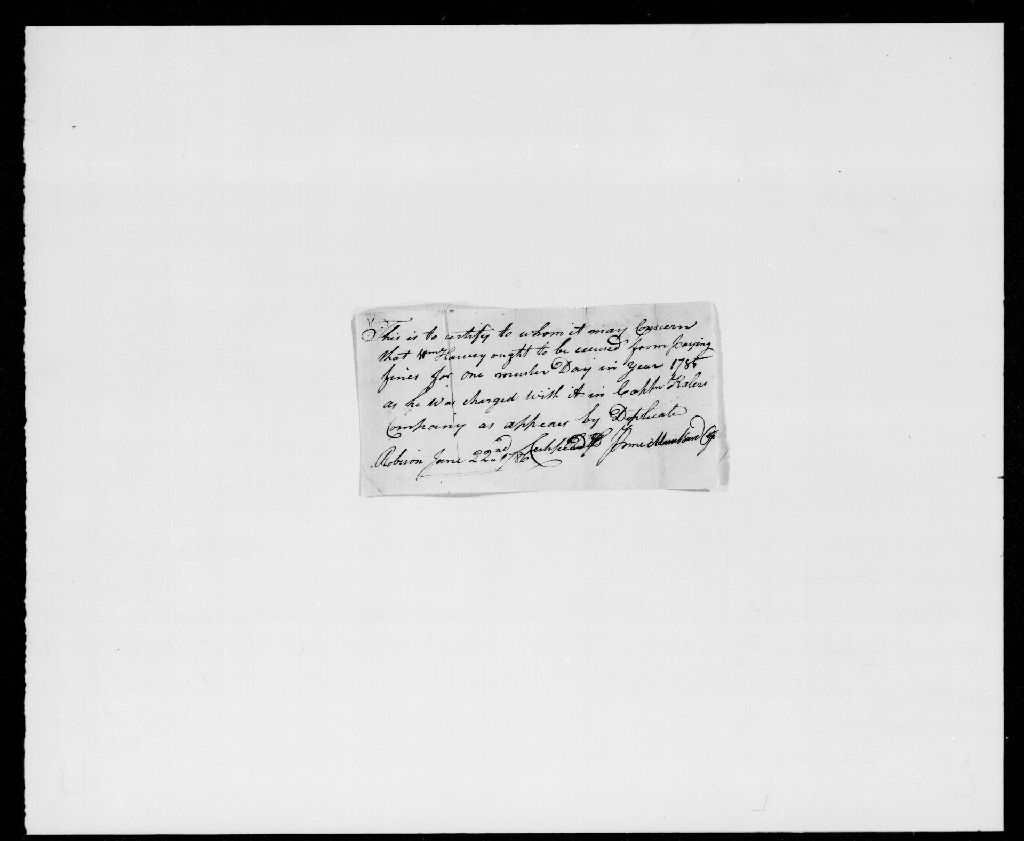 This is to certify to whom it may Concern
that Wm Harvey ought to be excused from paying
fines for one muster Day in Year 1785
as he was charged with it in Captn
Company as appears by Duplicate
Robison June 22nd 1786 Certified